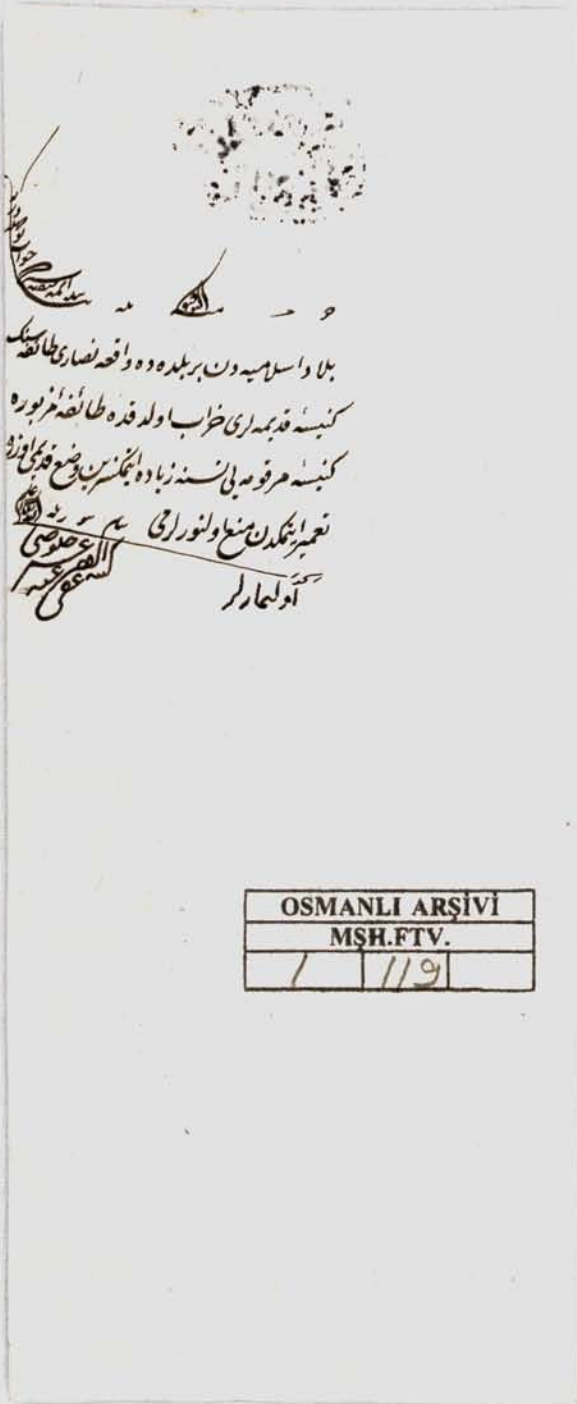 بلاد اسلامیه دن بر بلده ده واقعه نصاری طائفه سنك
كنیسه قدیمه لری خراب اولدقده طائفه مزبوره
كنیسه مرقومه یی نسنه زیاده ایتمكسزین وضع قدیمی اوزره
تعمیر ایتمكدن منع اولنورلرمی
الجواب
اولمازلر
كتبه الفقیر
عفی عنه
OSMANLI ARŞİVİ
MŞH.FTV.
1 119